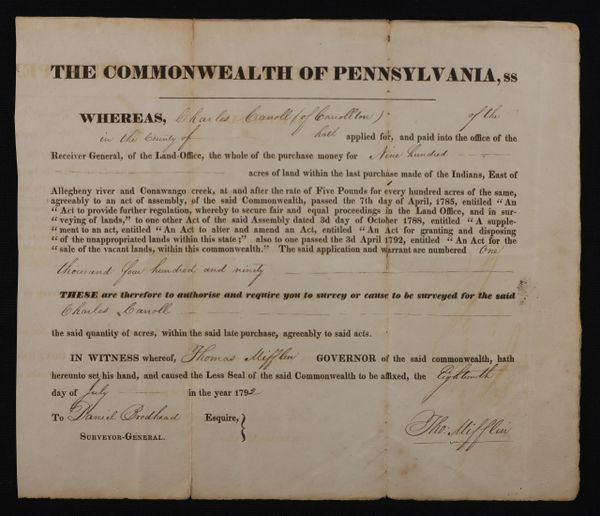 THE COMMONWEALTH OF PENNSYLVANIA, ss
WHEREAS, Charles Carroll (of Carrollton) of the
in the County of hath applied for, and paid into the office of the
Receiver General, of the Land-Office, the whole of the purchase money for Nine hundred
acres of land within the last purchase made of the Indians, East of
Allegheny river and Conawango creek, at and after the rate of Five Pounds for every hundred acres of the same,
agreeably to an act of assembly, of the said Commonwealth, passed the 7th day of April, 1785, entitled "An
" Act to provide further regulation, whereby to secure fair and equal proceedings in the Land Office, and in sur-
"veying of lands," to one other Act of the said Assembly dated 3d day of October 1788, entitled "A supple-
"ment to an act, entitled "An Act to alter and amend an Act, entitled "An Act for granting and disposing
"of the unappropriated lands within this state;" also to one passed the 3d April 1792, entitled "An Act for the
"sale of the vacant lands, within this commonwealth." The said application and warrant are numbered One
thousand four hundred and ninety
THESE are therefore to authorise and require you to survey or cause to be surveyed for the said
Charles Carroll
the said quantity of acres, within the said late purchase, agreeably to said acts.
IN WITNESS whereof, Thomas Mifflin GOVERNOR of the said commonwealth, hath
hereunto set his hand, and caused the Less Seal of the said Commonwealth to be affixed, the Eighteenth
day of July in the year 1792
To Daniel Brodhead Esquire, }
SURVEYOR-GENERAL.
Tho. Mifflin